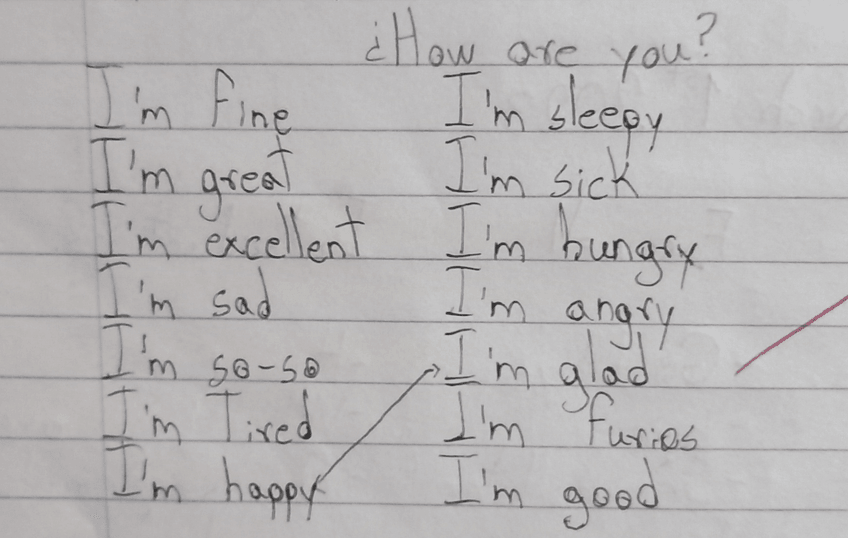 ¿How are you?
I'm fine
I'm great
I'm excellent
I'm sad
I'm so-so
I'm Tired
I'm happy
I'm sleepy
I'm sick
I'm hungry
I'm angry
I'm glad
I'm furios
I'm good